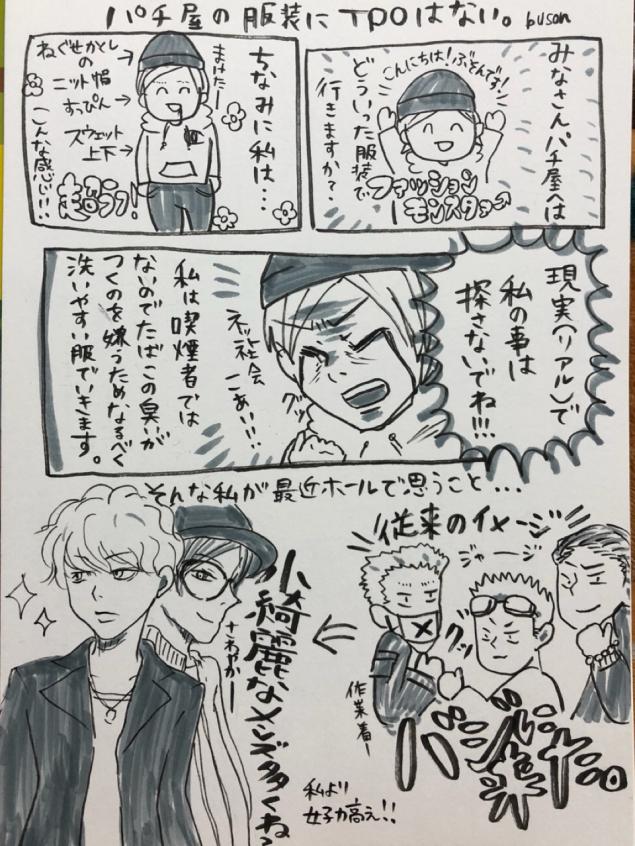 パチ屋の服装にTPOはない。 buson
みなさんパチ屋へは
どういった服装で
行きますか?
こんにちは!ぶそんです!
ファッション
モンスター
ちなみに私は…
まけたー
ねぐせかくし
の
ニット帽
すっぴん
スウェット
上下
こんな感じ!!
超ラフ!
現実(リアル)で
私の事は
探さないでね!!!
ネット社会
こあい!!
グッ
私は喫煙者では
ないのでたばこの臭いが
つくのを嫌うためなるべく
洗いやすい服でいきます。
そんな私が最近ホールで思うこと…
従来のイメージ
ジャージ
グッ
作業着
小綺麗なメンズ多くね?
さわやかー
私より
女子力高え!!